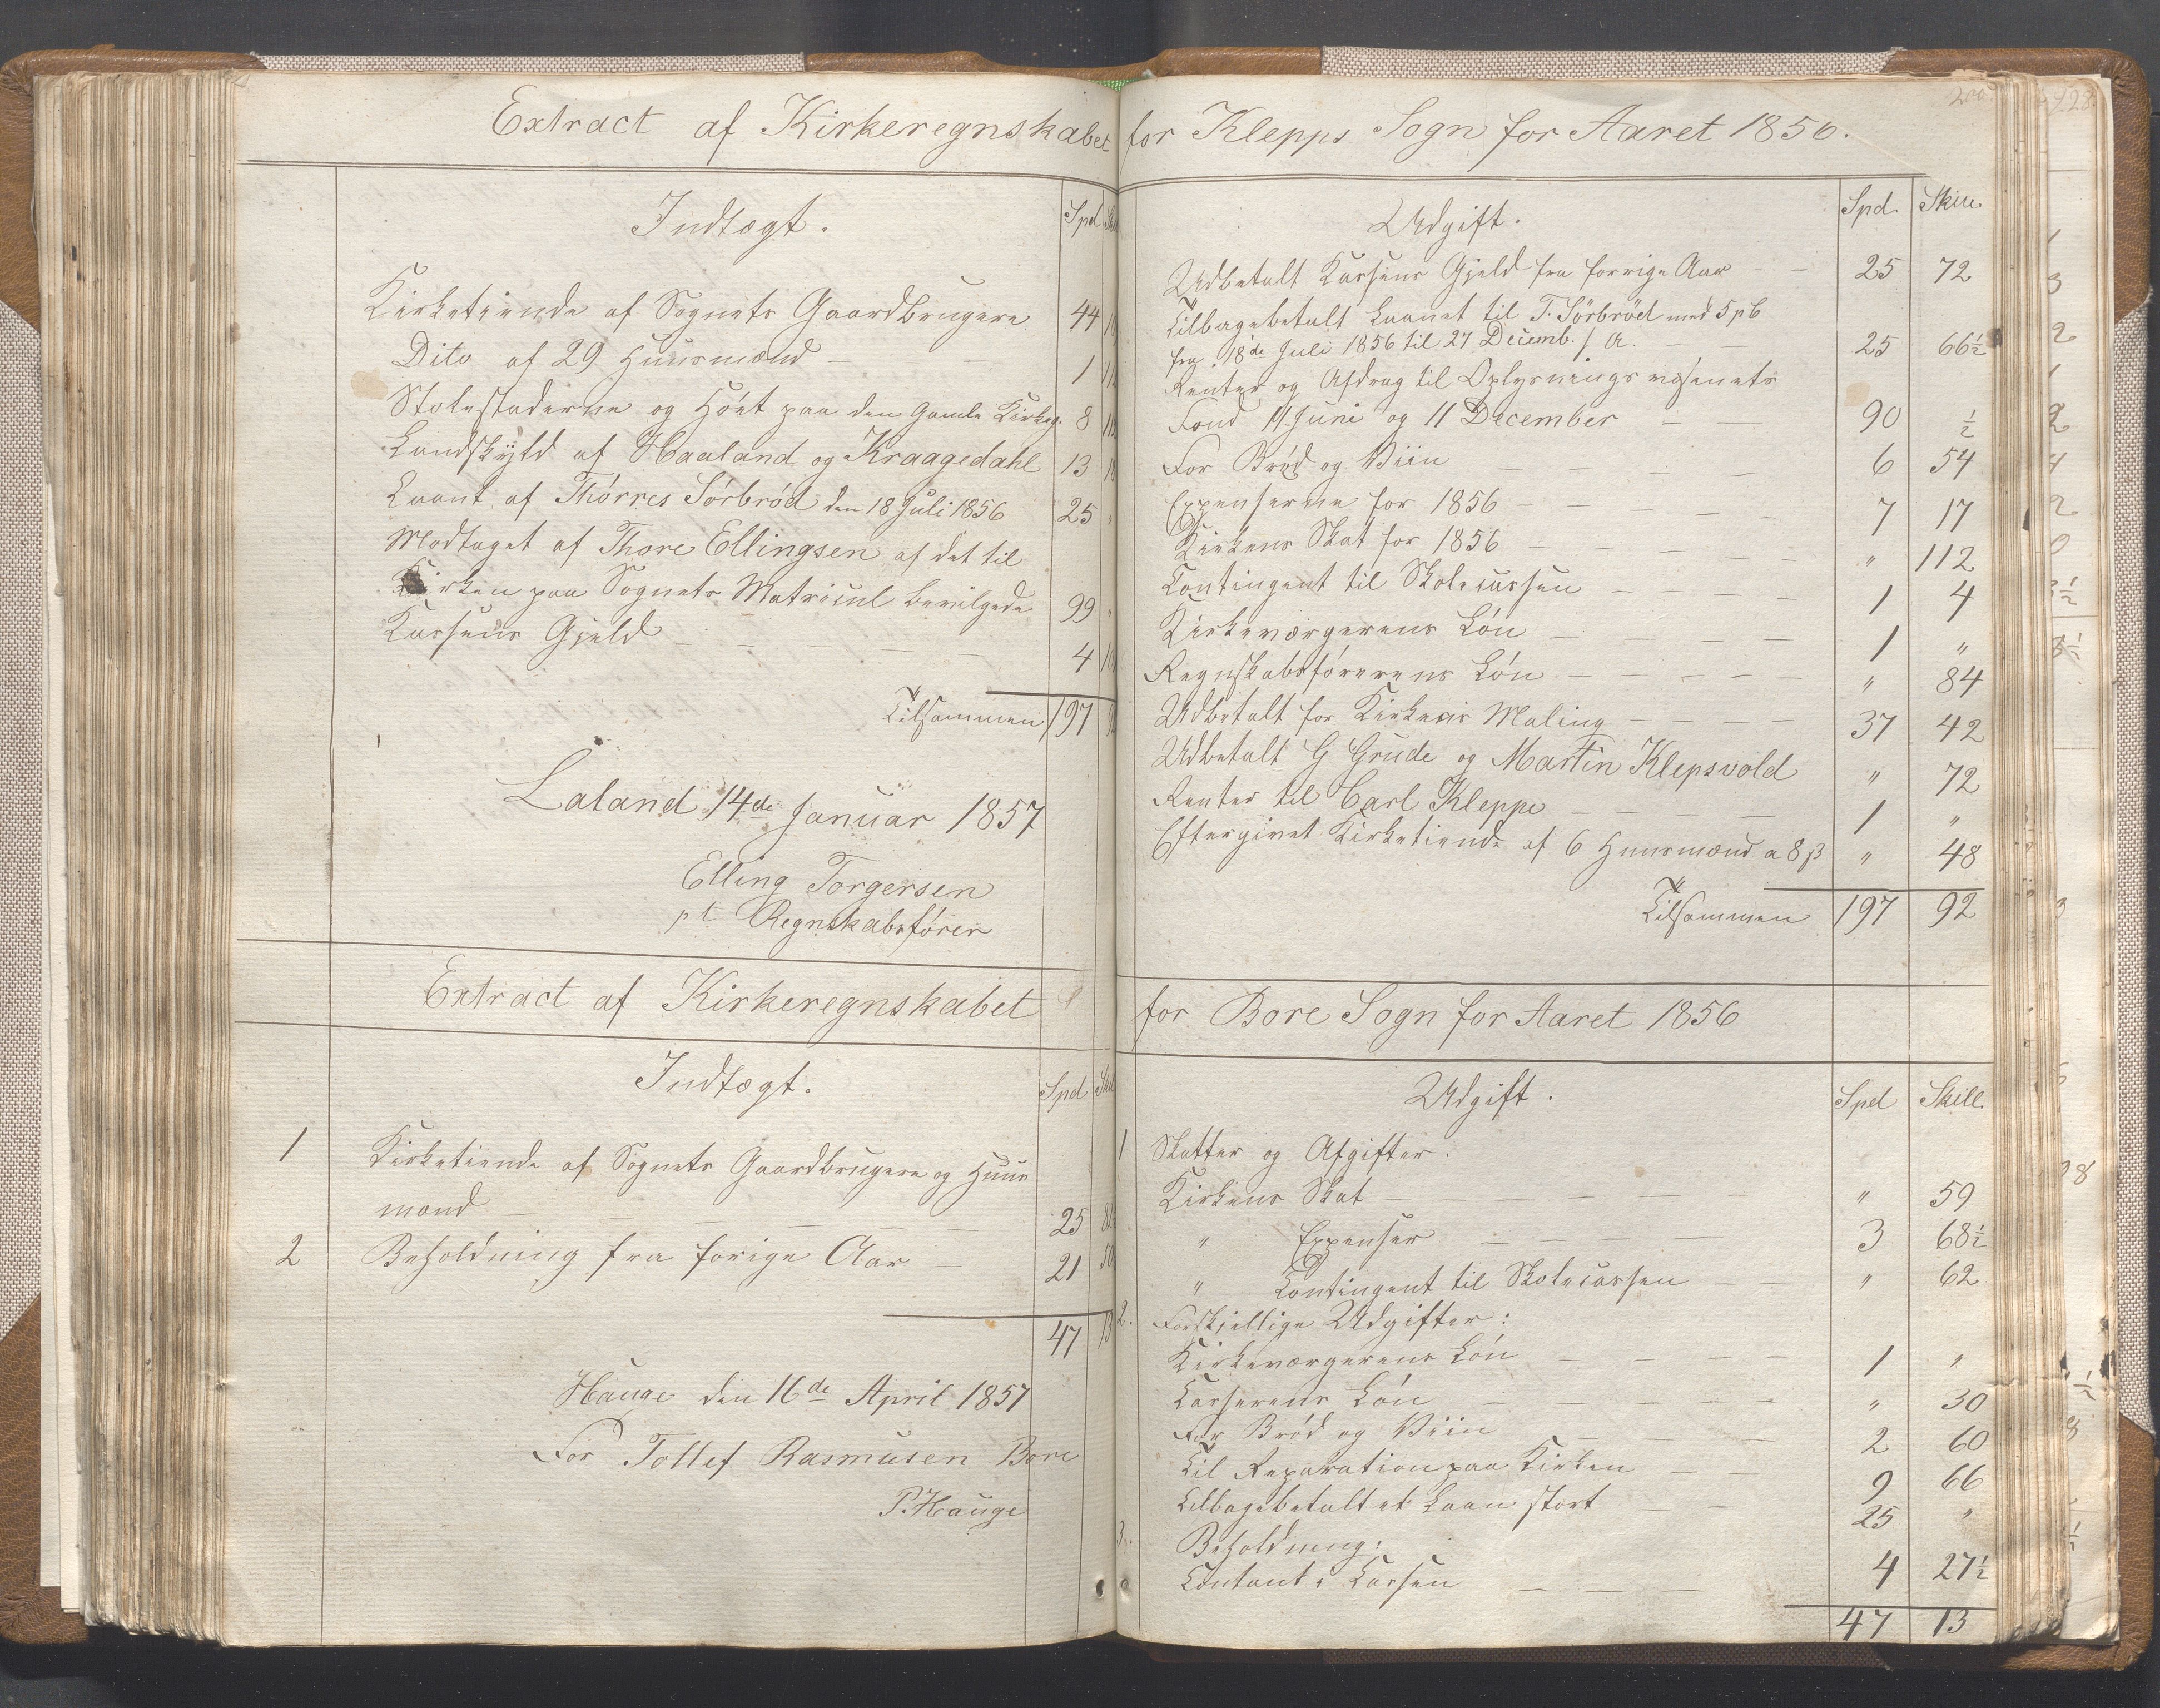 Extract af Kirkeregnskabet for Klepps Sogn for Aaret 1856.
Indtægt.
Spd
Kirketiende af Sognets Gaardbrugere 44
Dito af 29 Huusmænd 1
Stolestaderne og Höet paa den Gamle Kirkeg. 8
Landskyld af Haaland og Kraagedahl 13
Laant af Thörres Sörbröd den 18 Juli 1856 25
Modtaget af Thore Ellingsen af det til
Kirken paa Sognets Matricul bevilgede 99
Kassens Gjeld 4
Tilsammen 197
Laland 14de Januar 1857
Elling Torgersen
pt Regnskabsförer
Udgift.
Spd. Skill.
Udbetalt Kassens Gjeld fra forrige Aar 25 72
Tilbagebetalt Laanet til T. Sörbröd med 5 pC
fra 18de Juli 1856 til 27 Decemb. s. A. 25 66½
Renter og Afdrag til Oplysningsvæsenets
Fond 11 Juni og 11 December 90 ½
For Bröd og Viin 6 54
Expenserne for 1856 7 17
Kirkens Skat for 1856 " 112
Contingent til Skolecassen 1 4
Kirkeværgerens Lön 1 "
Regnskabsförerens Lön " 84
Udbetalt for Kirkens Maling 37 42
Udbetalt G Grude og Martin Klepsvold " 72
Renter til Carl Kleppe 1 "
Eftergivet Kirketiende af 6 Huusmænd a 8 β " 48
Tilsammen 197 92
Extract af Kirkeregnskabet for Bore Sogn for Aaret 1856
Indtægt.
Spd
1 Kirketiende af Sognets Gaardbrugere og Huus
mænd 25
2 Beholdning fra forige Aar 21
47 13
Hauge den 16de April 1857
For Tollef Rasmusen Bore
P. Hauge
Udgift.
Spd Skill.
1 Skatter og Afgifter:
Kirkens Skat " 59
" Expenser 3 68½
" Contingent til Skolecassen " 62
2. Forskjellige Udgifter:
Kirkeværgerens Lön 1 "
Casserens Lön " 30
For Bröd og Viin 2 60
Til Reparation paa Kirken 9 66
Tilbagebetalt et Laan stort 25 "
3. Beholdning:
Contant i Cassen 4 27½
47 13